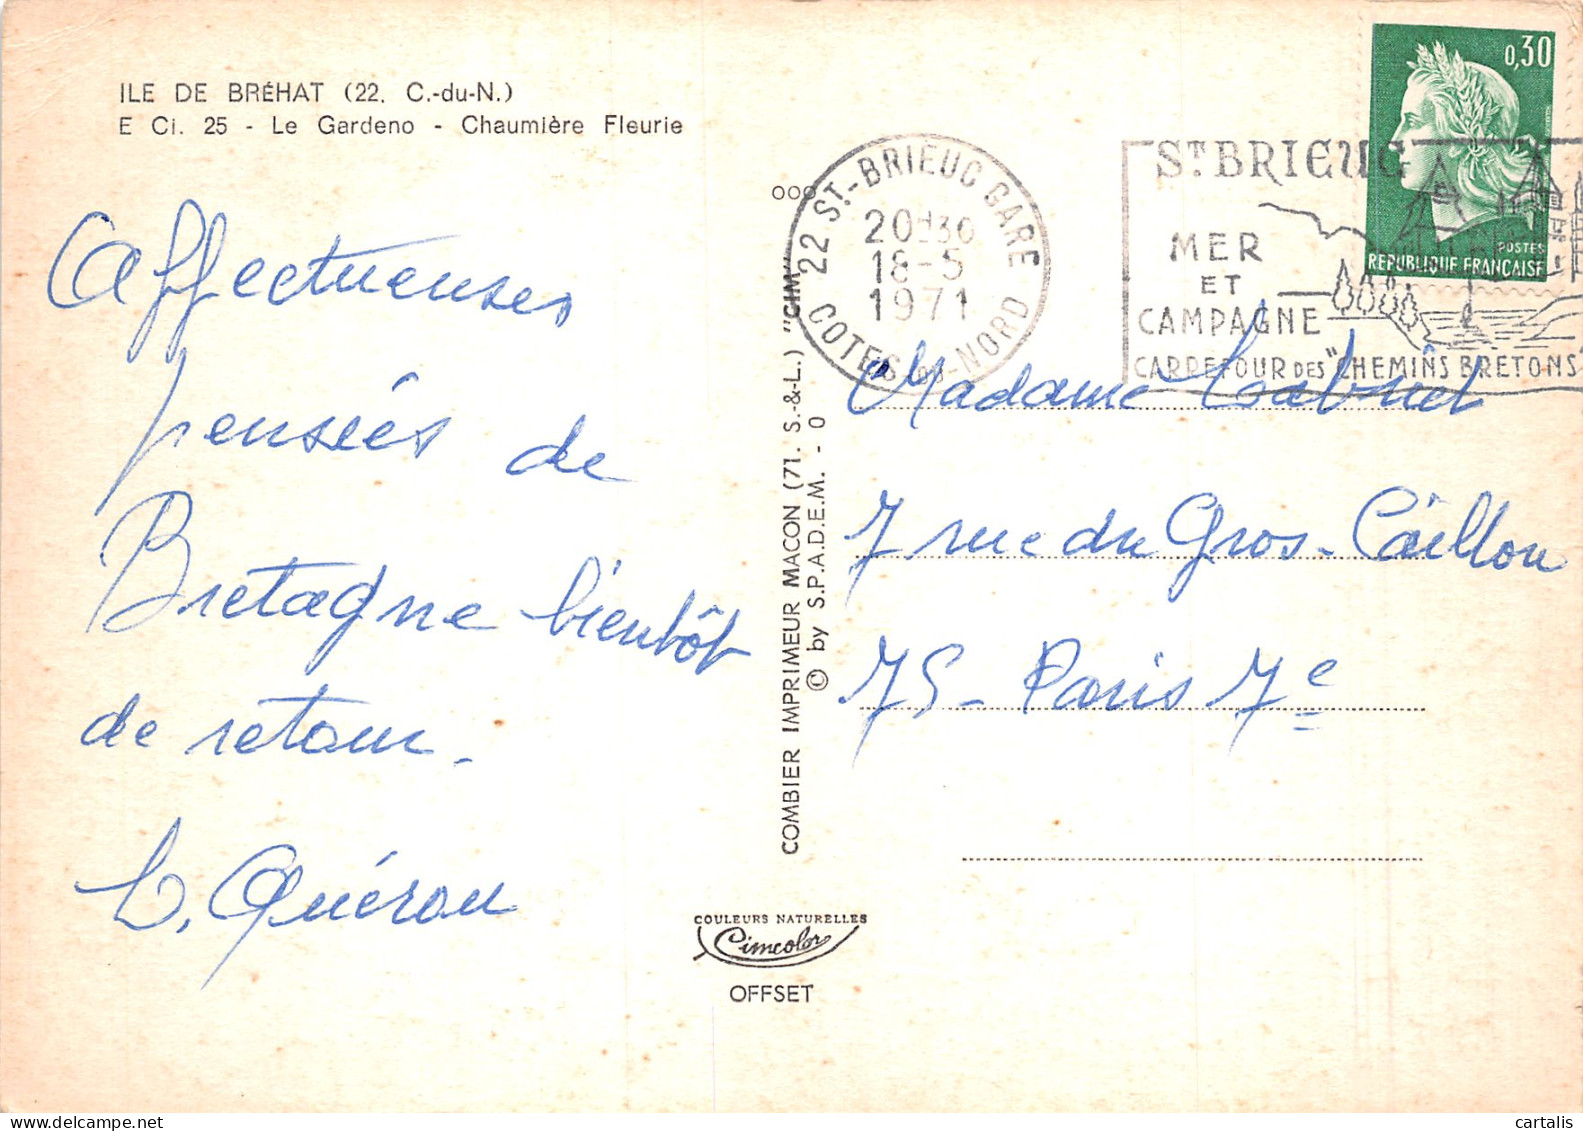 ILE DE BRÉHAT (22. C.-du-N.)
E Ci. 25 - Le Gardeno - Chaumière Fleurie
Affectueuses
pensées de
Bretagne bientôt
de retour.
L. Quérou
COMBIER IMPRIMEUR MACON (71. S.-&-L.) "CIM"
© by S.P.A.D.E.M. - 0
COULEURS NATURELLES
Cimcolor
OFFSET
000
22 ST-BRIEUC GARE
20H30
18-5
1971
COTES DU-NORD
ST BRIEUC
MER
ET
CAMPAGNE
CARREFOUR DES "CHEMINS BRETONS"
0,30
POSTES
REPUBLIQUE FRANÇAISE
Madame Cabriel
7 rue du Gros-Caillou
75 - Paris 7e
cartalis